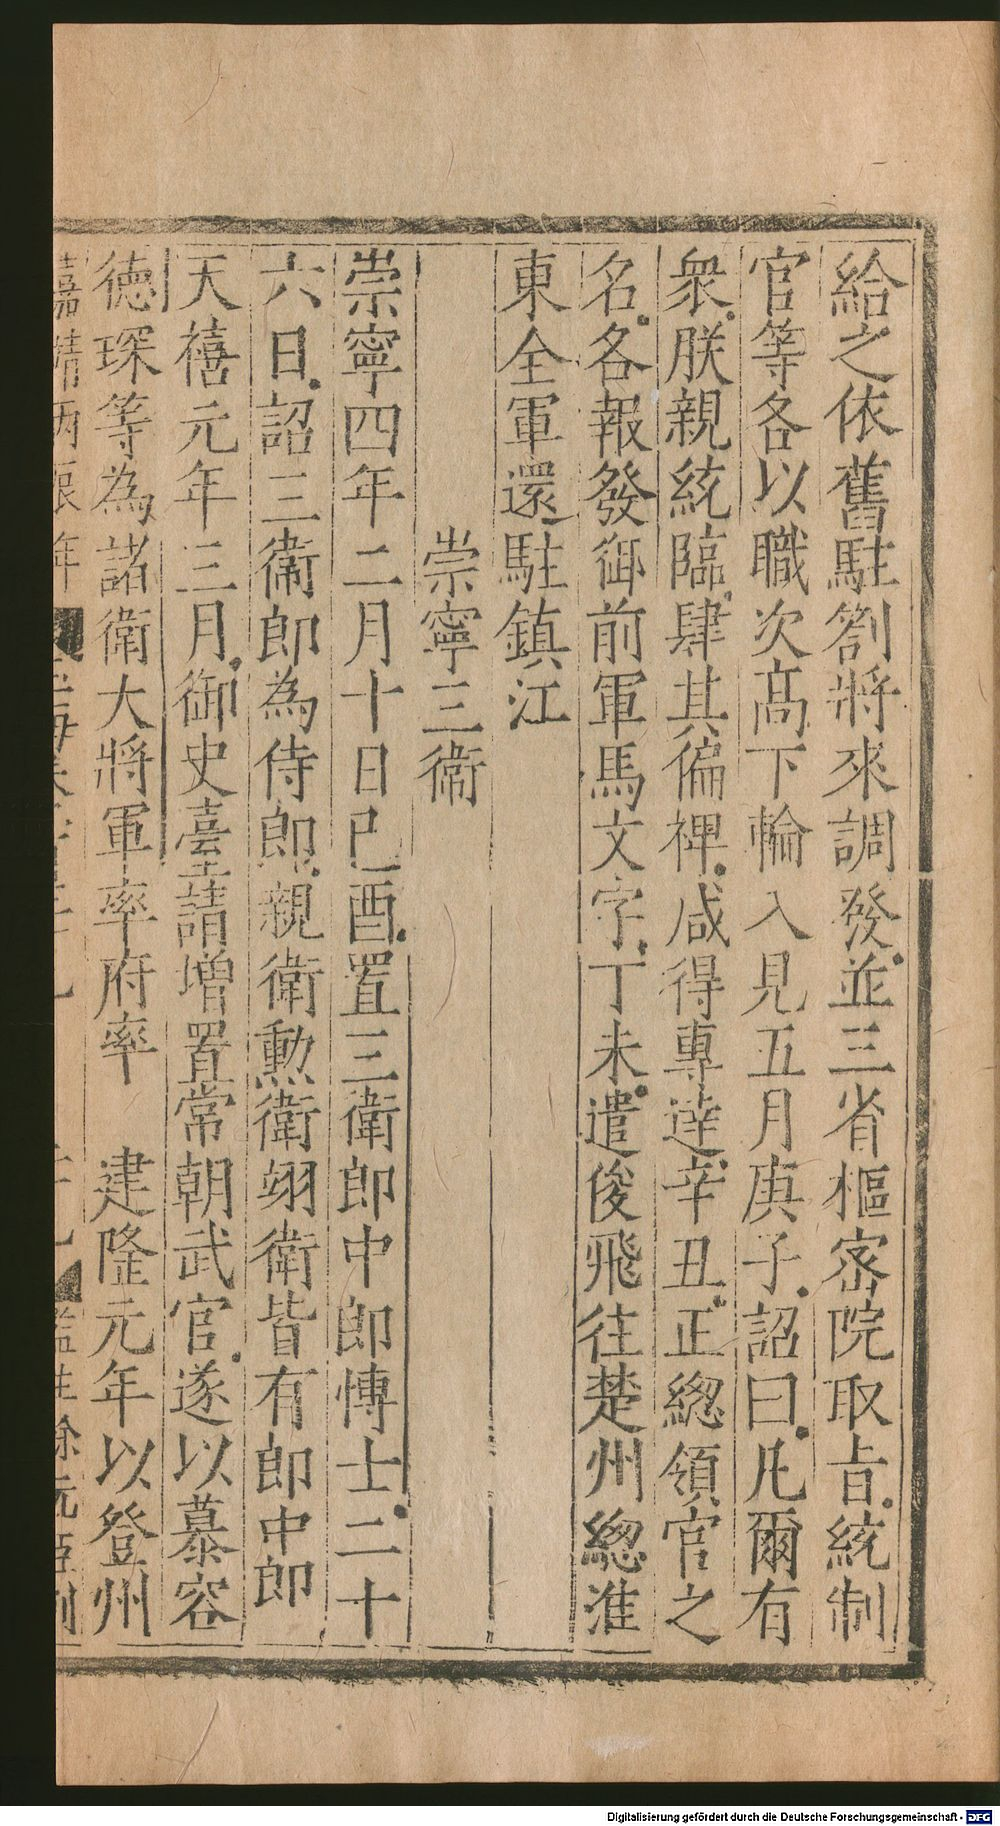 給之依舊駐劄將來調發並三省樞密院取旨統制
官等各以職次髙下輪入見五月庚子詔曰凡爾有
衆朕親統臨肆其偏裨咸得專達辛丑正總領官之
名各報發御前軍馬文字丁未遣俊飛往楚州總淮
東全軍還駐鎮江
崇寧三衛
崇寧四年二月十日己酉置三衛郎中郎博士二十
六日詔三衛郎為侍郎親衛勲衛翊衛皆有郎中郎
天禧元年三月御史臺請增置常朝武官遂以慕容
德琛等為諸衛大將軍率府率 建隆元年以登州
嘉靖丙辰年
監生徐沅亞刊
Digitalisierung gefördert durch die Deutsche Forschungsgemeinschaft - DFG